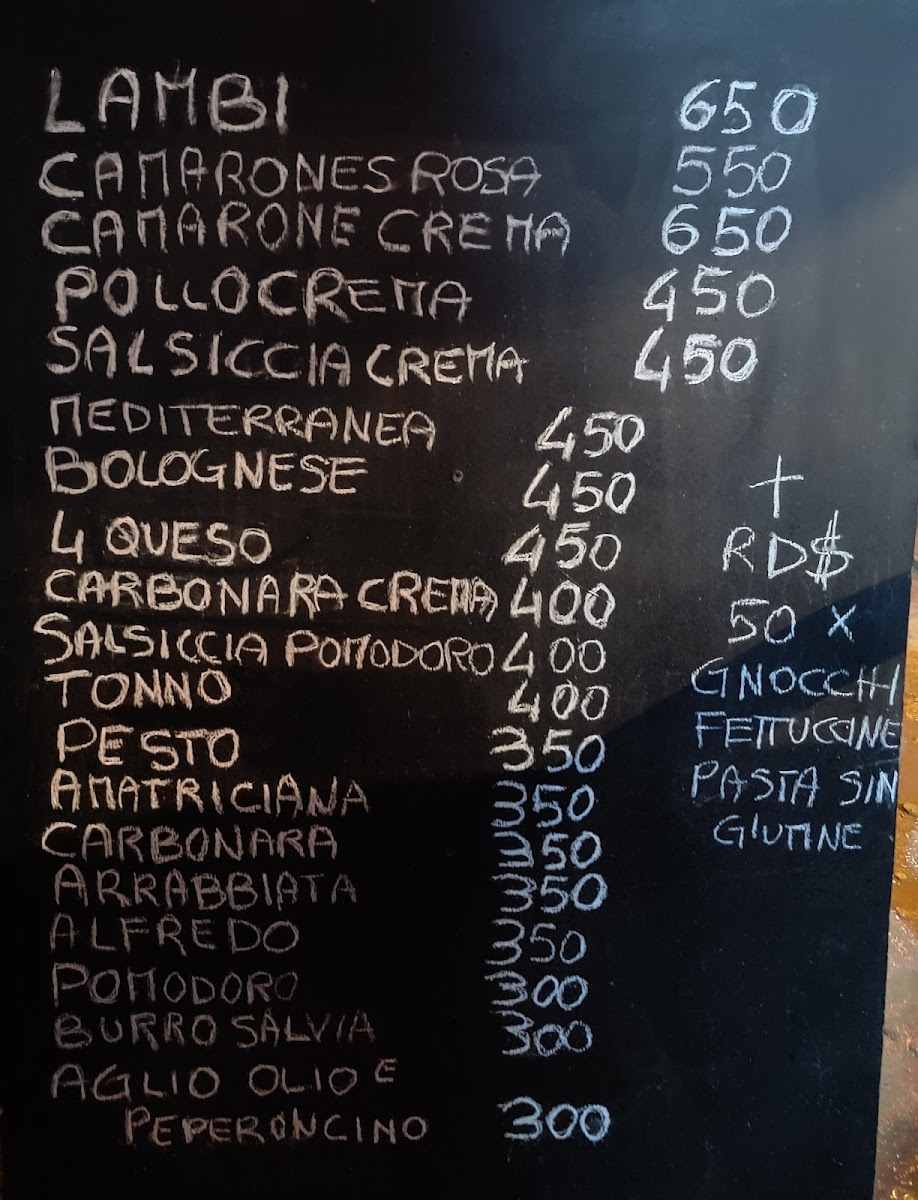 LAMBI 650
CAMARONES ROSA 550
CAMARONE CREMA 650
POLLO CREMA 450
SALSICCIA CREMA 450
MEDITERRANEA 450
BOLOGNESE 450
4 QUESO 450
CARBONARA CREMA 400
SALSICCIA POMODORO 400
TONNO 400
PESTO 350
AMATRICIANA 350
CARBONARA 350
ARRABBIATA 350
ALFREDO 350
POMODORO 300
BURRO SALVIA 300
AGLIO OLIO E
PEPERONCINO 300
+
RD$
50 x
GNOCCHI
FETTUCCINE
PASTA SIN
GLUTINE